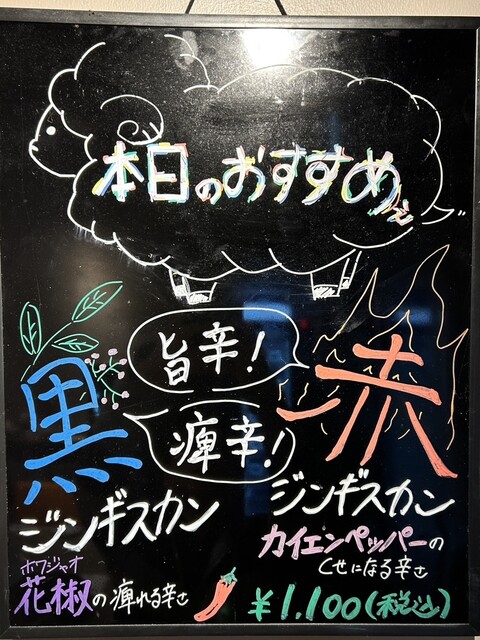 本日のおすすめぇ
旨辛!
痺辛!
赤
ジンギスカン
カイエンペッパーの
くせになる辛さ
黒
ジンギスカン
ホワジャオ
花椒の痺れる辛さ
¥1,100(税込)